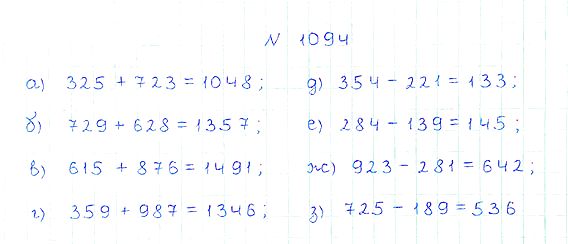 N 1094
а) 325 + 723 = 1048;
б) 729 + 628 = 1357;
в) 615 + 876 = 1491;
г) 359 + 987 = 1346;
д) 354 - 221 = 133;
е) 284 - 139 = 145;
ж) 923 - 281 = 642;
з) 725 - 189 = 536